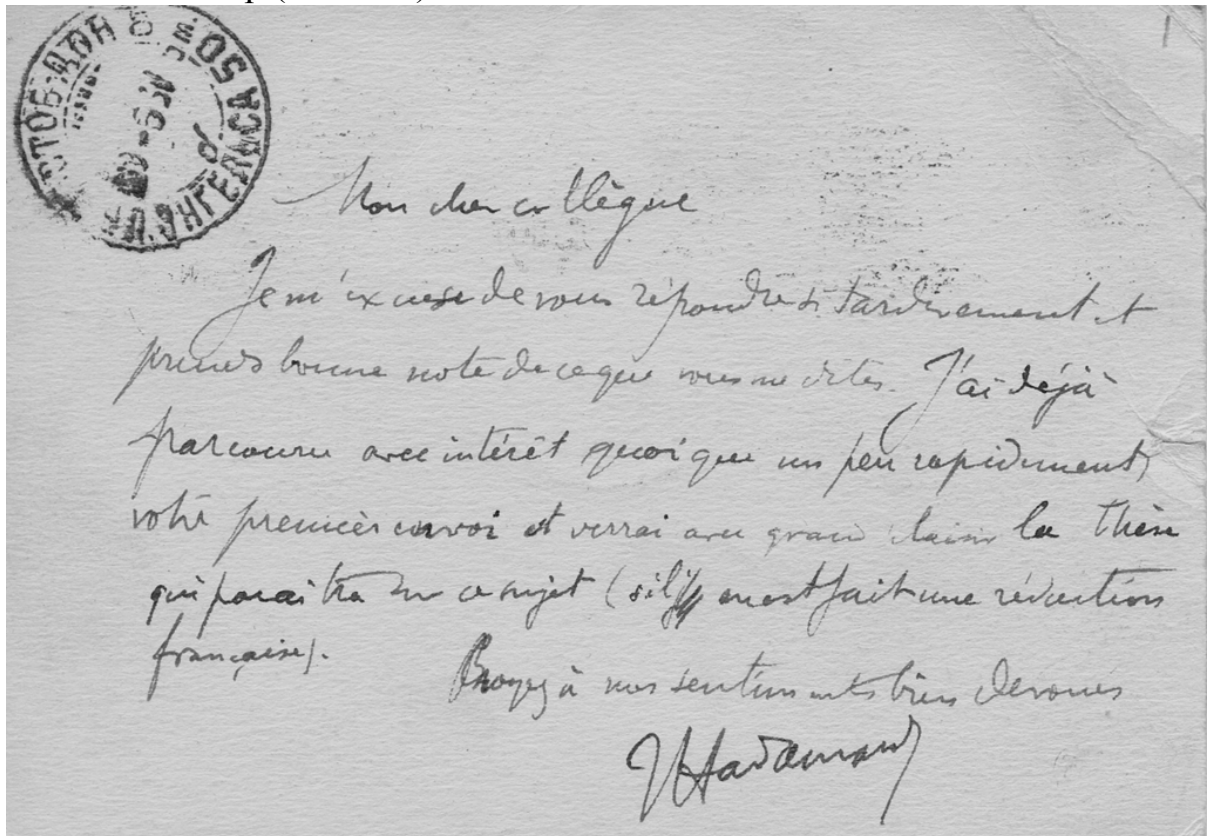 Mon cher collègue
Je m'excuse de vous répondre si tardivement et
prends bonne note de ce que vous me dites. J'ai déjà
parcouru avec intérêt quoique un peu rapidement,
votre premier envoi et verrai avec grand plaisir la thèse
qui paraîtra sur ce sujet (s'il en est fait une rédaction
française).
Croyez à mes sentiments bien dévoués
J Hadamard